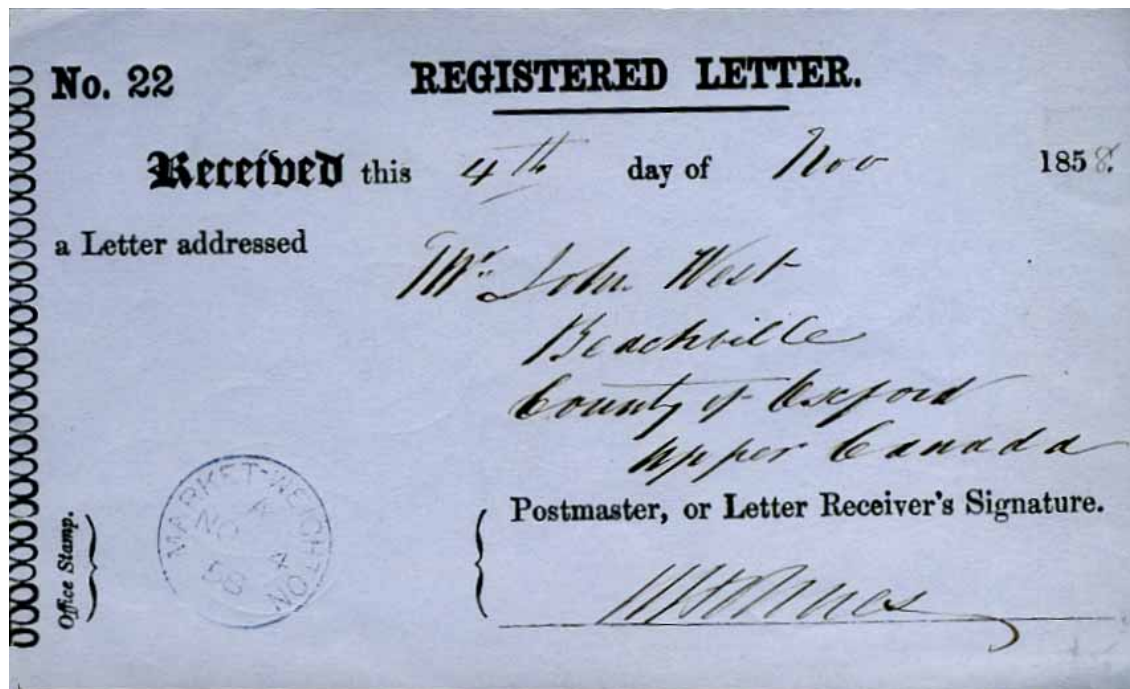 No. 22
REGISTERED LETTER.
Received this 4th day of Nov 1858.
a Letter addressed
Mr. John West
Beachville
County of Oxford
Upper Canada
Office Stamp.
MARKET-WEIGHTON
A
NO 4
58
Postmaster, or Letter Receiver's Signature.